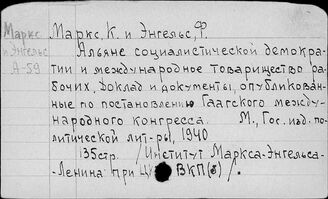 Маркс Маркс, К. и Энгельс, Ф.
и Энгельс
А-59
Альянс социалистической демокра-
тии и международное товарищество ра-
бочих. Доклад и документы, опубликован-
ные по постановлению Гаагского между-
народного конгресса. М., Гос. изд. по-
литической лит-ры, 1940
135стр. /Институт Маркса-Энгельса-
-Ленина при ВКП(б)/.